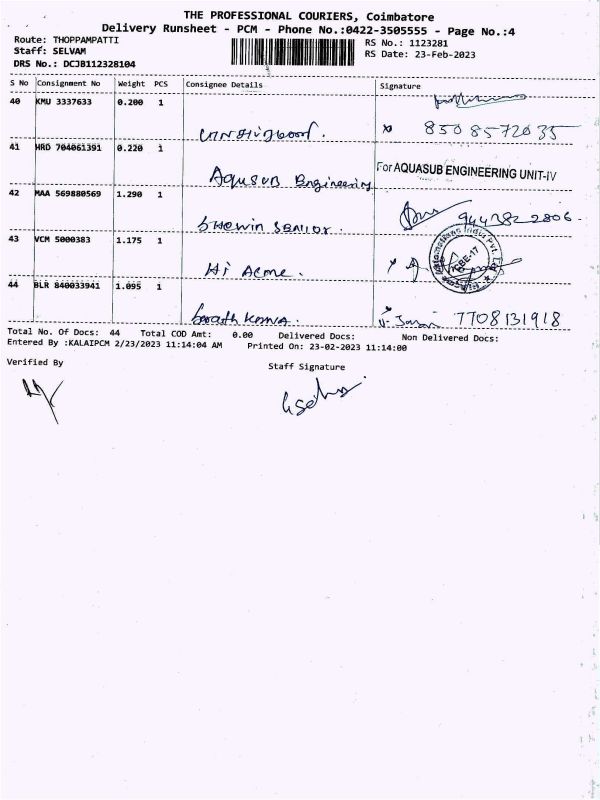 THE PROFESSIONAL COURIERS, Coimbatore
Delivery Runsheet - PCM - Phone No.:0422-3505555 - Page No.:4
Route: THOPPAMPATTI
Staff: SELVAM
DRS No.: DCJB112328104
RS No.: 1123281
RS Date: 23-Feb-2023
S No Consignment No Weight PCS Consignee Details Signature
40 KMU 3337633 0.200 1
8508572035
41 HRD 704061391 0.220 1
Aqusub Engineering
For AQUASUB ENGINEERING UNIT-IV
42 MAA 569880569 1.290 1
9443822806
43 VCM 5000383 1.175 1
Hi Acme.
CBE-17
44 BLR 840033941 1.095 1
7708131918
Total No. Of Docs: 44 Total COD Amt: 0.00 Delivered Docs: Non Delivered Docs:
Entered By :KALAIPCM 2/23/2023 11:14:04 AM Printed On: 23-02-2023 11:14:00
Verified By
Staff Signature